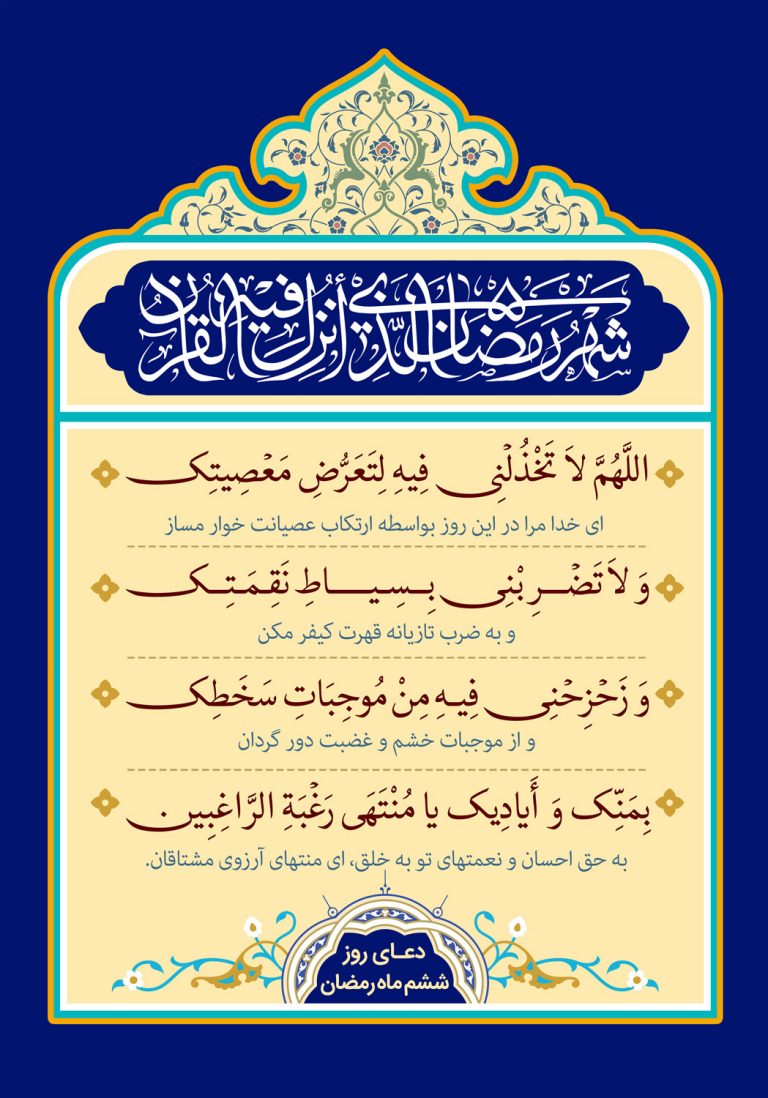 شَهْرُ رَمَضَانَ الَّذِي أُنْزِلَ فِيهِ الْقُرْآنُ
اللَّهُمَّ لاَ تَخْذُلْنِی فِیهِ لِتَعَرُّضِ مَعْصِیتِک
ای خدا مرا در این روز بواسطه ارتکاب عصیانت خوار مساز
وَ لاَ تَضْرِبْنِی بِسِیاطِ نَقِمَتِک
و به ضرب تازیانه قهرت کیفر مکن
وَ زَحْزِحْنِی فِیهِ مِنْ مُوجِبَاتِ سَخَطِک
و از موجبات خشم و غضبت دور گردان
بِمَنِّک وَ أَیادِیک یا مُنْتَهَی رَغْبَةِ الرَّاغِبِین
به حق احسان و نعمتهای تو به خلق، ای منتهای آرزوی مشتاقان.
دعای روز
ششم ماه رمضان